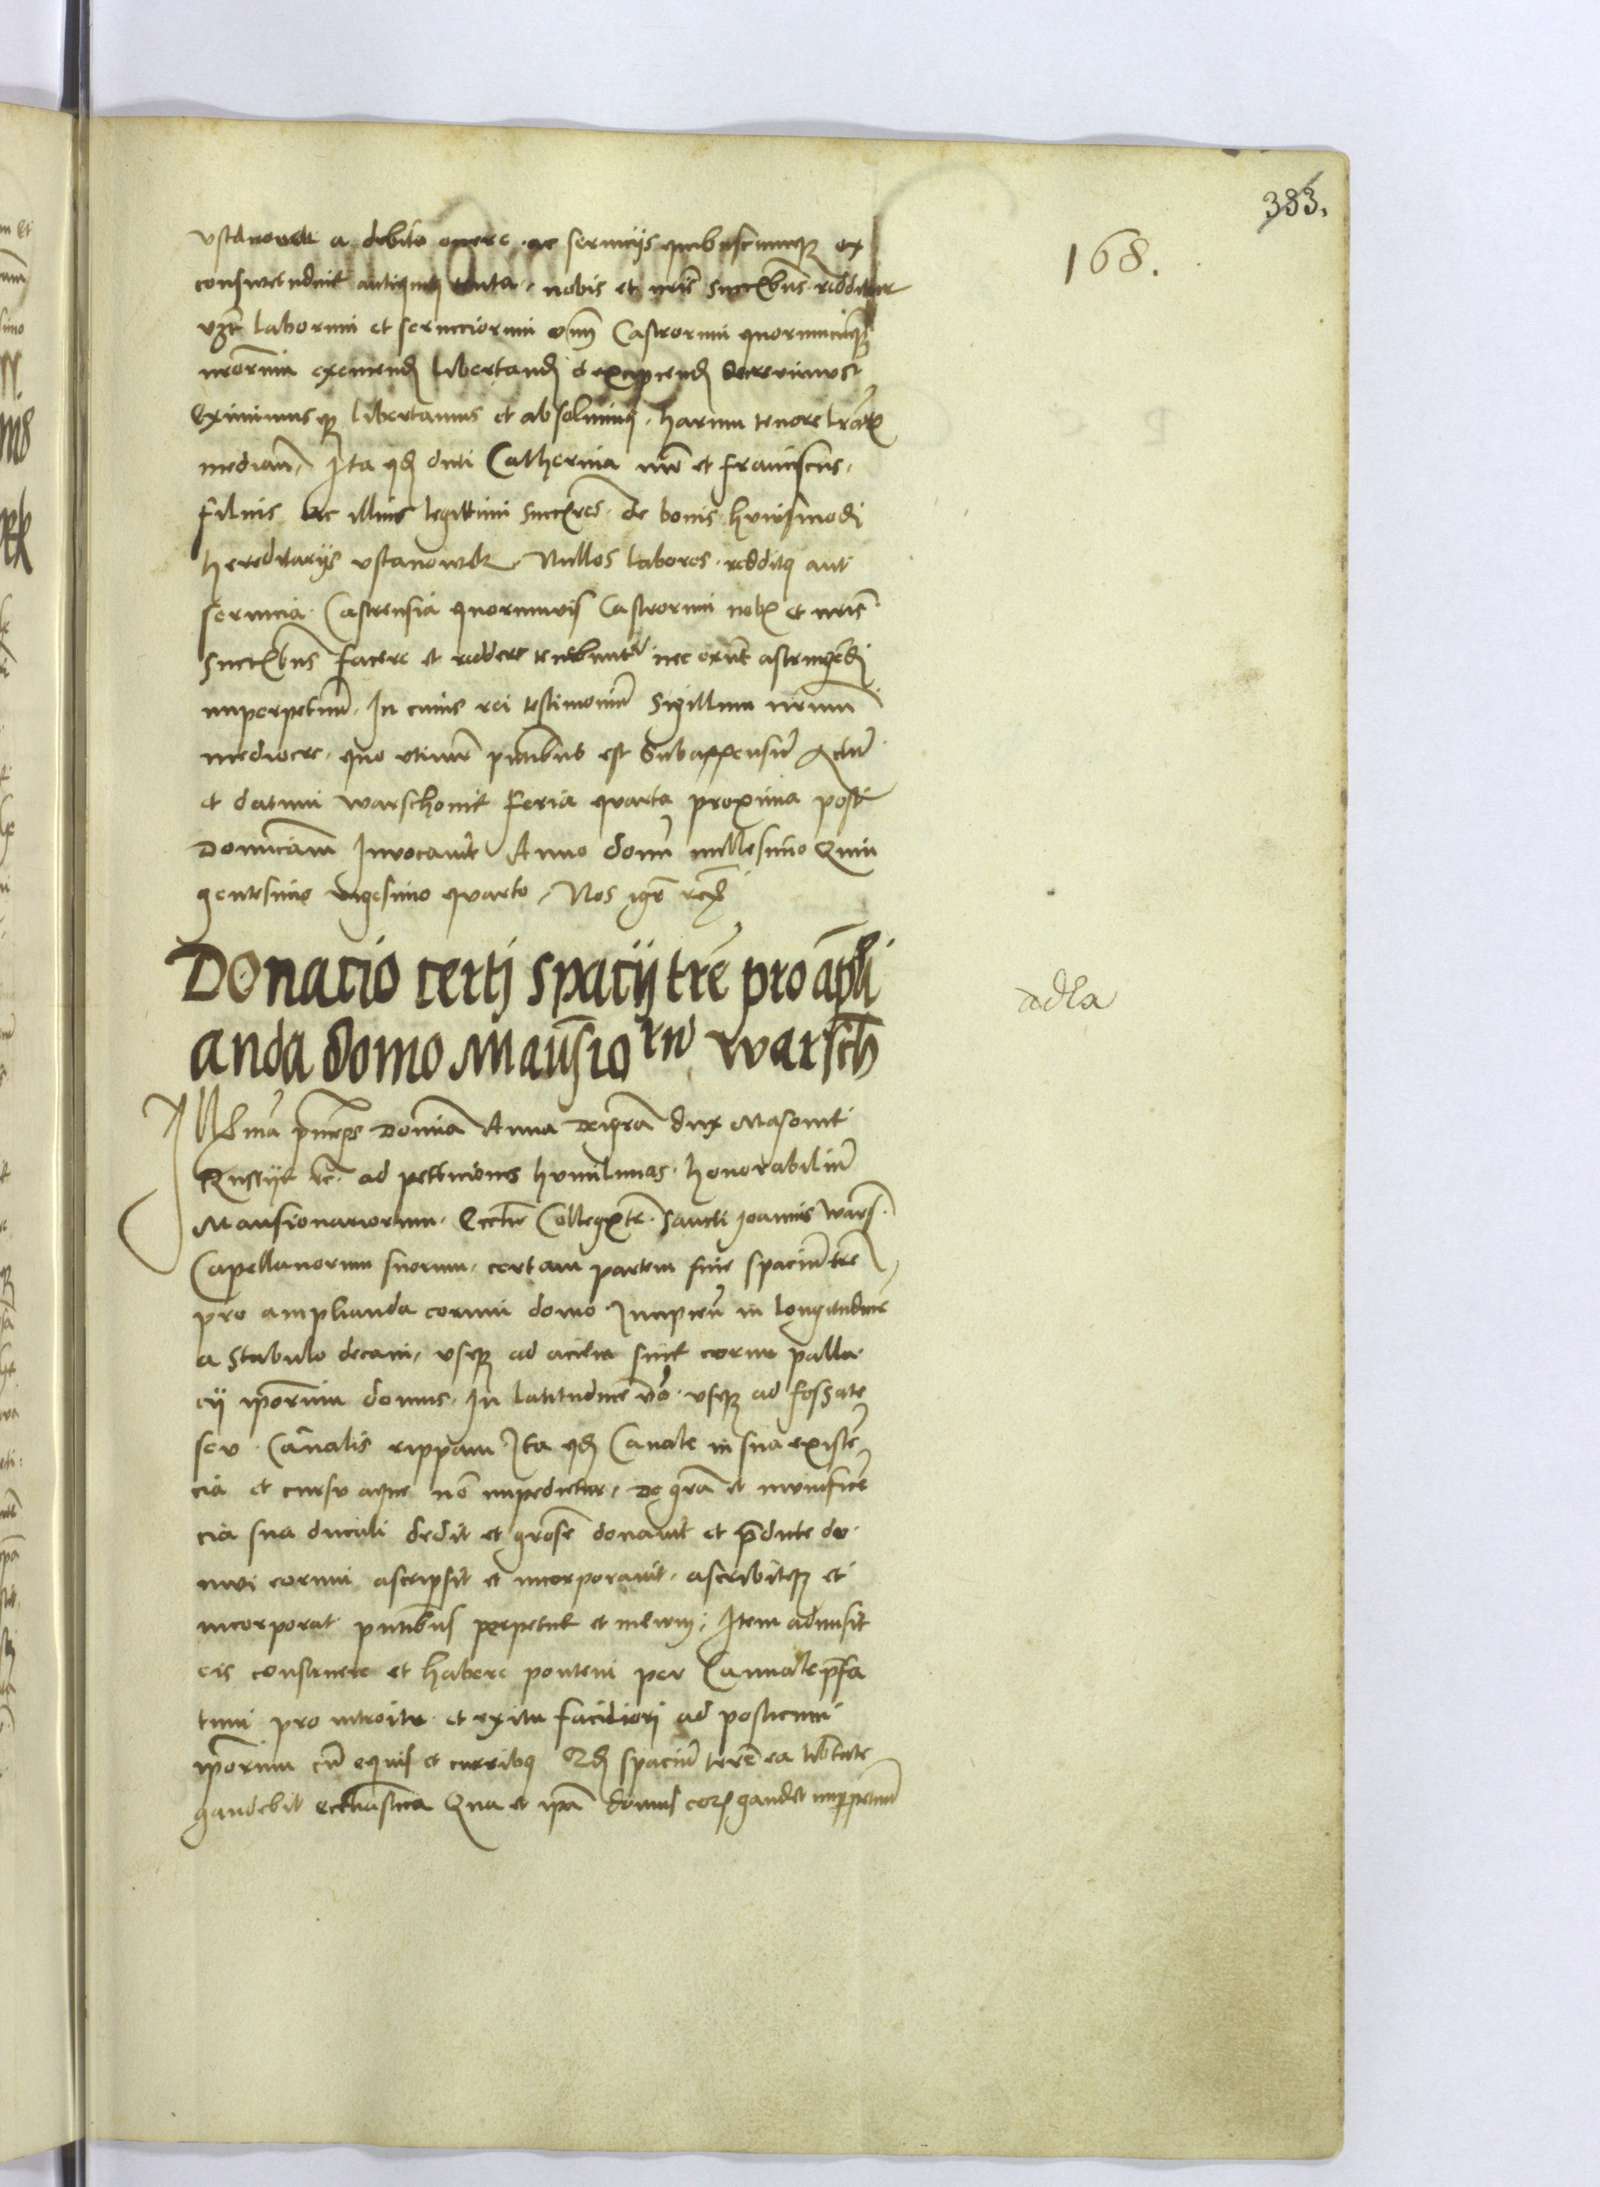 383.
168.
vstanowek a debito onere ac seruicijs quibuscumqz ex
consuetudine antiquitus tenta nobis et nris succribus reddituu
vzt laborum et seruiciorum omm Castrorum quorumcumqz
nrorum eximend libertand excipiend decreuimus
Eximimusqz libertamus et absoluimus harum tenore lrarum
median Ita qd dicti Catherina mr et Franciscus
filius ac illius legittimi succres de bonis huiusmodi
hereditarijs vstanowek Nullos labores redditus aut
seruicia Castrensia quorumuis Castrorum nobis et nris
succribus facere et reddere tenebuntur nec erunt astringendi
imperpetuum In cuius rei testimonium Sigillum nrum
mediocre quo vtimur pntibus est Subappensum Actum
et datum warschouie feria quarta proxima post
Dominicam Inuocauit Anno domi millesimo Quin
gentesimo vigesimo quarto Nos igr etc
Donacio certj spacij tre pro ampli
anda domo Mansiorum warsch
adla
Illma princeps Domina Anna dei gra dux Masouie
Russije etc ad petticiones humilimas honorabilium
Mansionariorum Ecclie Collegte Sancti Joannis wars
Capellanorum suorum certam partem siue spacium tre
pro amplianda eorum domo Incipien in longitudine
a Stabulo decani vsqz ad aciem siue cornu palla
cij iporum domus In latitudine vero vsqz ad fossate
seu Canalis rippam Ita qd Canale in sua existen
cia et cursu aque non impedietur De gra et munificen
cia sua ducali dedit et grose donauit et predicte do
mui eorum ascripsit et incorporauit ascribitqz et
incorporat pntibus perpetue et in euum Item admisit
eis construere et habere pontem per Cannale prefa
tum pro introitu et exitu faciliori ad posticum
iporum cum equis et curribus Qd spacium terre ea libtate
gaudebit ecclesiastica Qua et ipa domus eorum gaudet imperpetuum